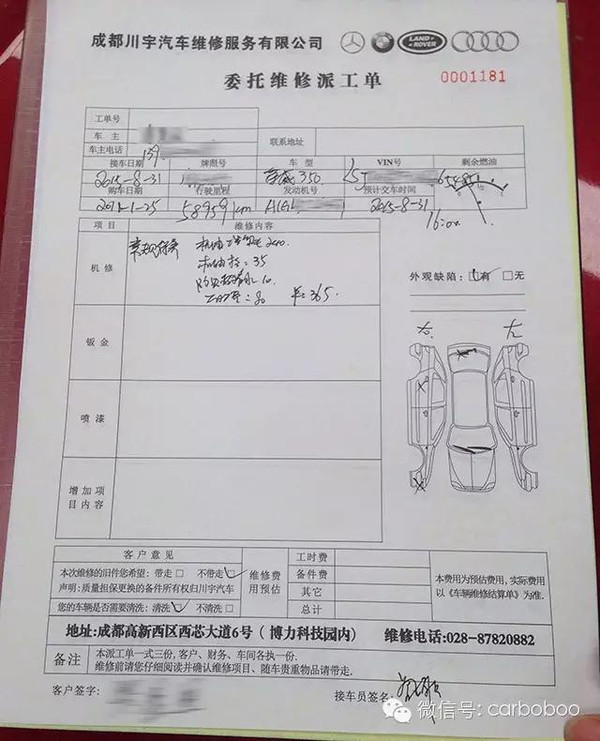 成都川宇汽车维修服务有限公司
LAND ROVER
委托维修派工单
0001181
工单号
车主
车主电话
159
联系地址
接车日期 牌照号 车型 VIN号 剩余燃油
2015-8-31 350 LSJ
购车日期 行驶里程 发动机号 预计交车时间
58959km 2015-8-31
16:00
项目 维修内容
机修
机油
240
35
10
工时费:80 共:365
外观缺陷: 有 无
右 左
钣金
喷漆
增加项目内容
客户意见
本次维修的旧件您希望: 带走 不带走
声明:质量担保更换的备件所有权归川宇汽车
您的车辆是否需要清洗: 清洗 不清洗
维修费用预估
工时费
备件费
其它
总计
本费用为预估费用,实际费用以《车辆维修结算单》为准.
地址:成都高新西区西芯大道6号(博力科技园内) 维修电话:028-87820882
备注
本派工单一式三份,客户、财务、车间各执一份.
维修前请您仔细阅读并确认维修项目、随车贵重物品请带走.
客户签字:
接车员签名:
微信号: carboboo